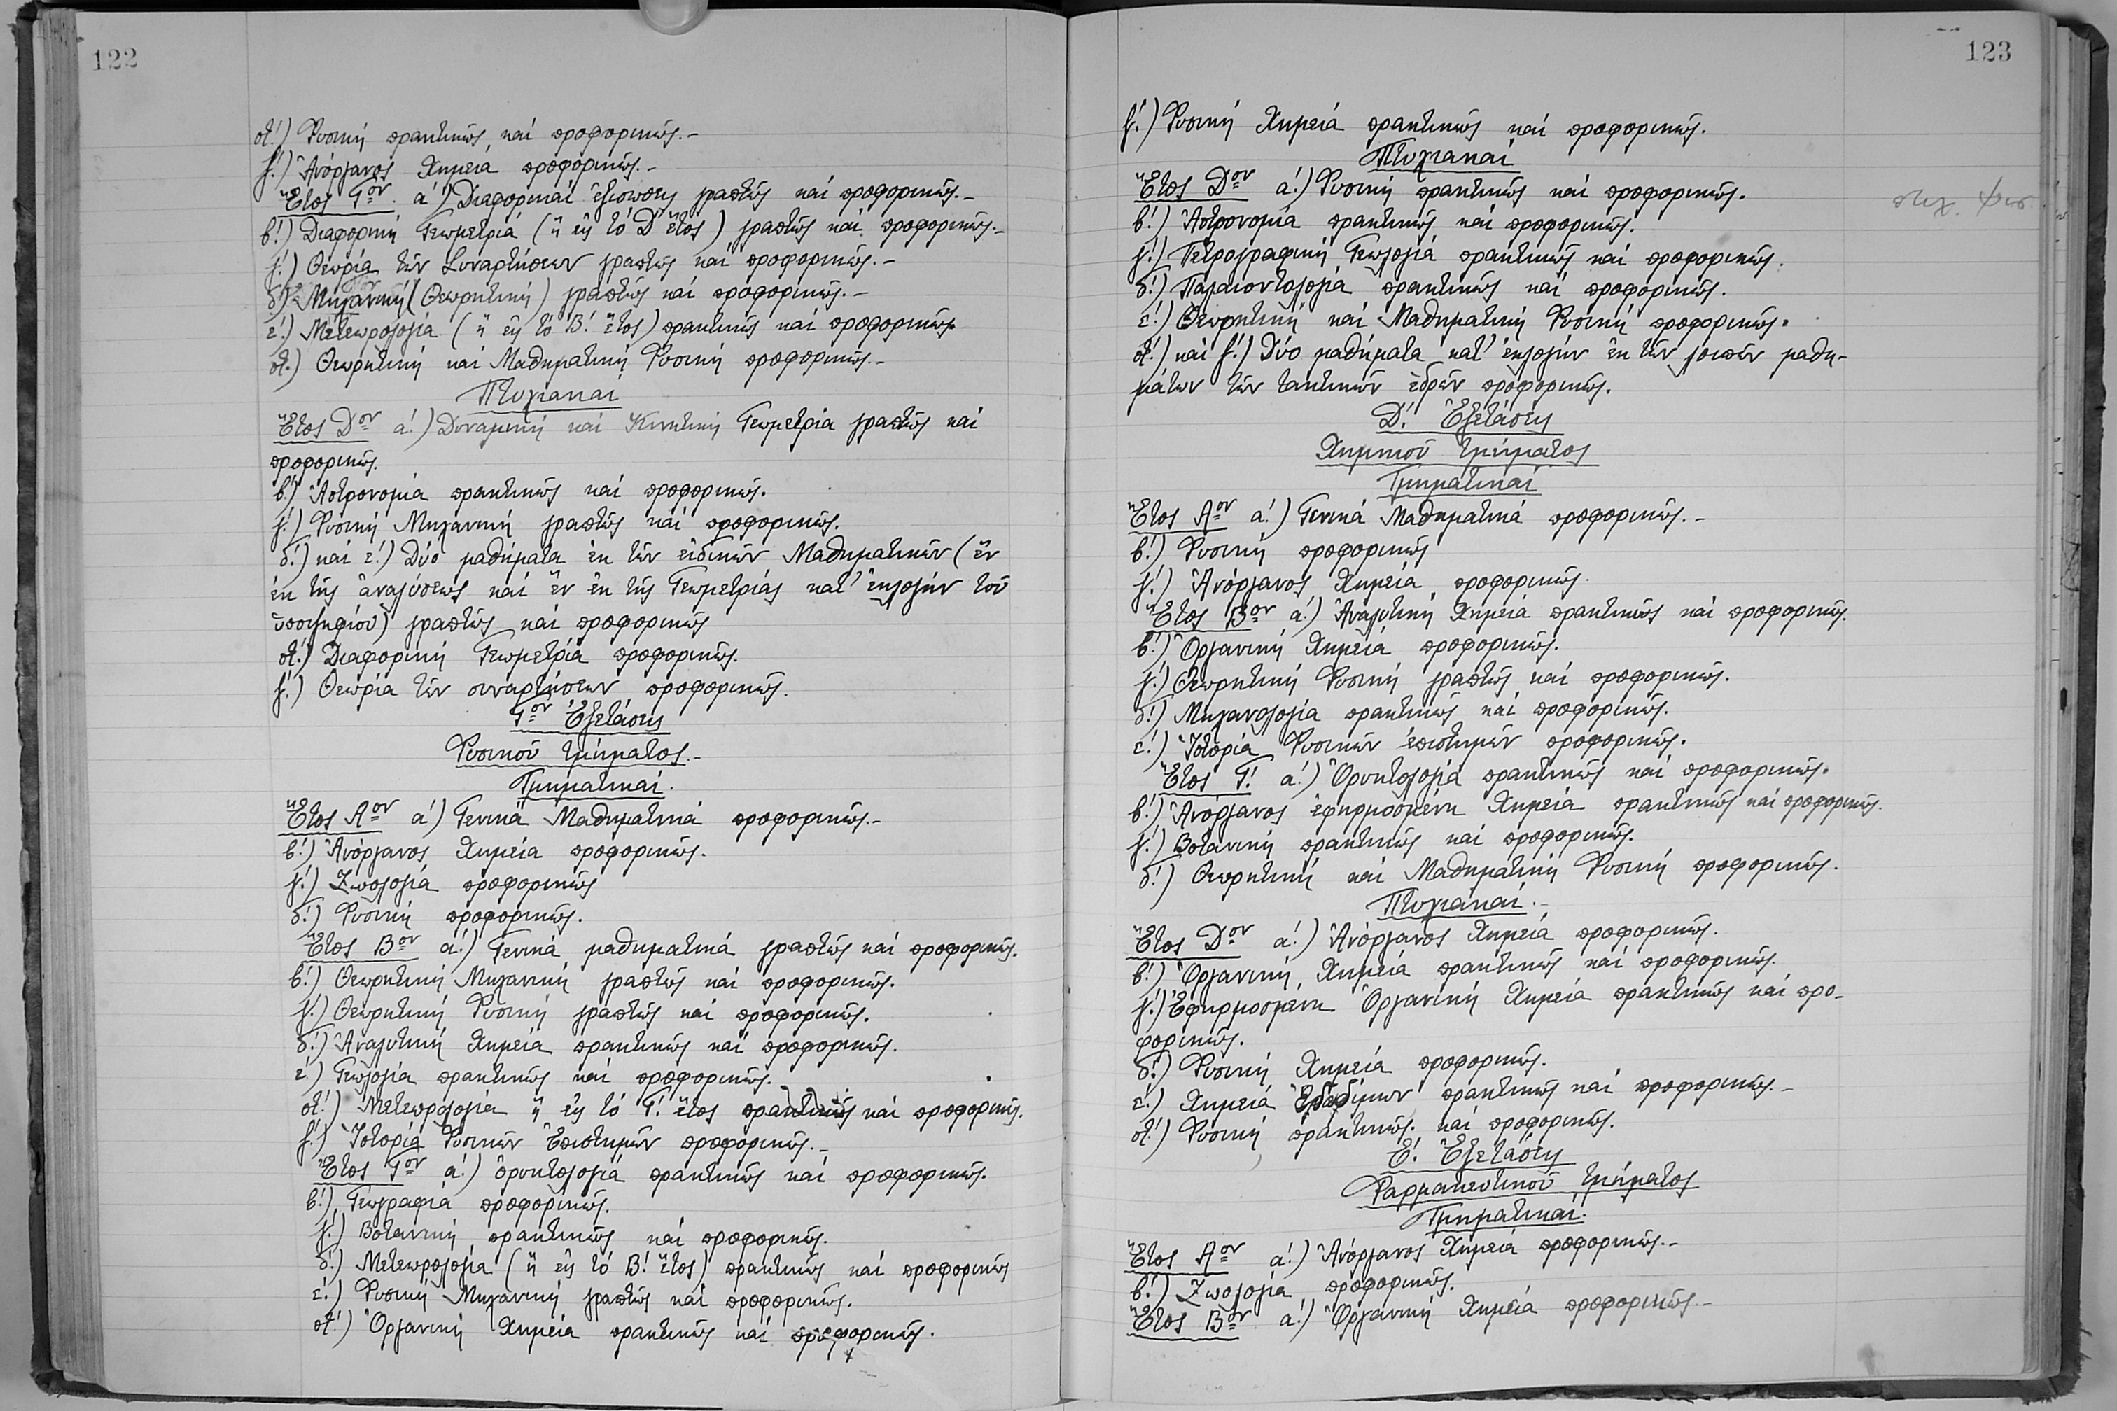 122
στ΄.) Φυσική πρακτικῶς καί προφορικῶς.-
ζ΄.) Ἀνόργανος Χημεία προφορικῶς.-
Ἔτος Γον. α΄) Διαφορικαί ἐξισώσεις γραπτῶς καί προφορικῶς.-
β΄.) Διαφορική Γεωμετρία (ἤ εἰς τό Δ΄ ἔτος) γραπτῶς καί προφορικῶς.-
γ΄.) Θεωρία τῶν Συναρτήσεων γραπτῶς καί προφορικῶς.-
δ΄.) Μηχανική (Θεωρητική) γραπτῶς καί προφορικῶς.-
ε΄.) Μετεωρολογία (ἤ εἰς τό Β΄. ἔτος) πρακτικῶς καί προφορικῶς.
στ.) Θεωρητική καί Μαθηματική Φυσική προφορικῶς.-
Πτυχιακαί
Ἔτος Δον α΄.) Δυναμική καί Κινητική Γεωμετρία γραπτῶς καί
προφορικῶς.
β΄.) Ἀστρονομία πρακτικῶς καί προφορικῶς.
γ΄.) Φυσική Μηχανική γραπτῶς καί προφορικῶς.
δ΄.) καί ε΄.) Δύο μαθήματα ἐκ τῶν εἰδικῶν Μαθηματικῶν (ἕν
ἐκ τῆς ἀναλύσεως καί ἕν ἐκ τῆς Γεωμετρίας κατ' ἐκλογήν τοῦ
ὑποψηφίου) γραπτῶς καί προφορικῶς
στ΄.) Διαφορική Γεωμετρία προφορικῶς.
ζ΄.) Θεωρία τῶν συναρτήσεων προφορικῶς.
Γον Ἐξετάσεις
Φυσικοῦ τμήματος.-
Τμηματικαί.
Ἔτος Αον α΄) Γενικά Μαθηματικά προφορικῶς.-
β΄.) Ἀνόργανος Χημεία προφορικῶς.
γ΄.) Ζωολογία προφορικῶς
δ΄.) Φυσική προφορικῶς.
Ἔτος Βον α΄.) Γενικά μαθηματικά γραπτῶς καί προφορικῶς.
β΄.) Θεωρητική Μηχανική γραπτῶς καί προφορικῶς.
γ΄.) Θεωρητική Φυσική γραπτῶς καί προφορικῶς.
δ΄.) Ἀναλυτική Χημεία πρακτικῶς καί προφορικῶς.
ε΄) Γεωλογία πρακτικῶς καί προφορικῶς.
στ΄.) Μετεωρολογία ἤ εἰς τό Γ΄. ἔτος πρακτικῶς καί προφορικῶς.
ζ΄) Ἱστορία Φυσικῶν Ἐπιστημῶν προφορικῶς.-
Ἔτος Γον α΄.) ὀρυκτολογία πρακτικῶς καί προφορικῶς.
β΄.) Γεωγραφία προφορικῶς.
γ΄.) Βοτανική πρακτικῶς καί προφορικῶς.
δ΄.) Μετεωρολογία (ἤ εἰς τό Β΄. ἔτος) πρακτικῶς καί προφορικῶς
ε΄.) Φυσική Μηχανική γραπτῶς καί προφορικῶς.
στ΄) Ὀργανική Χημεία πρακτικῶς καί προφορικῶς.
123
ζ΄.) Φυσική Χημεία πρακτικῶς καί προφορικῶς.
Πτυχιακαί
Ἔτος Δον α΄.) Φυσική πρακτικῶς καί προφορικῶς.
β΄.) Ἀστρονομία πρακτικῶς καί προφορικῶς.
γ΄.) Πετρογραφική Γεωλογία πρακτικῶς καί προφορικῶς.
δ΄.) Παλαιοντολογία πρακτικῶς καί προφορικῶς.
ε΄.) Θεωρητική καί Μαθηματική Φυσική προφορικῶς.
στ΄.) καί ζ΄.) Δύο μαθήματα κατ' ἐκλογήν ἐκ τῶν λοιπῶν μαθη-
μάτων τῶν τακτικῶν ἑδρῶν προφορικῶς.
Δ΄. Ἐξετάσεις
Χημικοῦ τμήματος
Τμηματικαί
Ἔτος Αον α΄.) Γενικά Μαθηματικά προφορικῶς.-
β΄.) Φυσική προφορικῶς
γ΄.) Ἀνόργανος Χημεία προφορικῶς.
Ἔτος Βον α΄.) Ἀναλυτική Χημεία πρακτικῶς καί προφορικῶς.
β΄.) Ὀργανική Χημεία προφορικῶς.
γ΄.) Θεωρητική Φυσική γραπτῶς καί προφορικῶς.
δ΄.) Μηχανολογία πρακτικῶς καί προφορικῶς.
ε΄.) Ἱστορία Φυσικῶν ἐπιστημῶν προφορικῶς.
Ἔτος Γ΄. α΄.) Ὀρυκτολογία πρακτικῶς καί προφορικῶς.
β΄.) Ἀνόργανος ἐφηρμοσμένη Χημεία πρακτικῶς καί προφορικῶς.
γ΄.) Βοτανική πρακτικῶς καί προφορικῶς.
δ΄.) Θεωρητική καί Μαθηματική Φυσική προφορικῶς.
Πτυχιακαί.-
Ἔτος Δον α΄.) Ἀνόργανος Χημεία προφορικῶς.
β΄.) Ὀργανική Χημεία πρακτικῶς καί προφορικῶς.
γ΄.) Ἐφηρμοσμένη Ὀργανική Χημεία πρακτικῶς καί προ-
φορικῶς.
δ΄.) Φυσική Χημεία προφορικῶς.
ε΄.) Χημεία πρακτικῶς καί προφορικῶς.-
στ΄.) Φυσική πρακτικῶς καί προφορικῶς.
Ε΄. Ἐξετάσεις
Φαρμακευτικοῦ τμήματος
Τμηματικαί.
Ἔτος Αον α΄.) Ἀνόργανος Χημεία προφορικῶς.-
β΄.) Ζωολογία προφορικῶς.
Ἔτος Βον α΄.) Ὀργανική Χημεία προφορικῶς.-